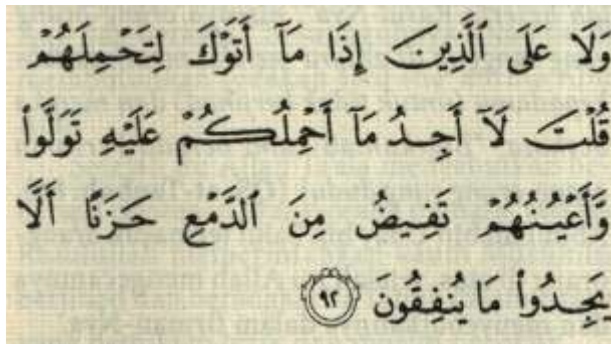 وَلَا عَلَى ٱلَّذِينَ إِذَا مَآ أَتَوْكَ لِتَحْمِلَهُمْ
قُلْتَ لَآ أَجِدُ مَآ أَحْمِلُكُمْ عَلَيْهِ تَوَلَّوا۟
وَّأَعْيُنُهُمْ تَفِيضُ مِنَ ٱلدَّمْعِ حَزَنًا أَلَّا
يَجِدُوا۟ مَا يُنفِقُونَ ٩٢